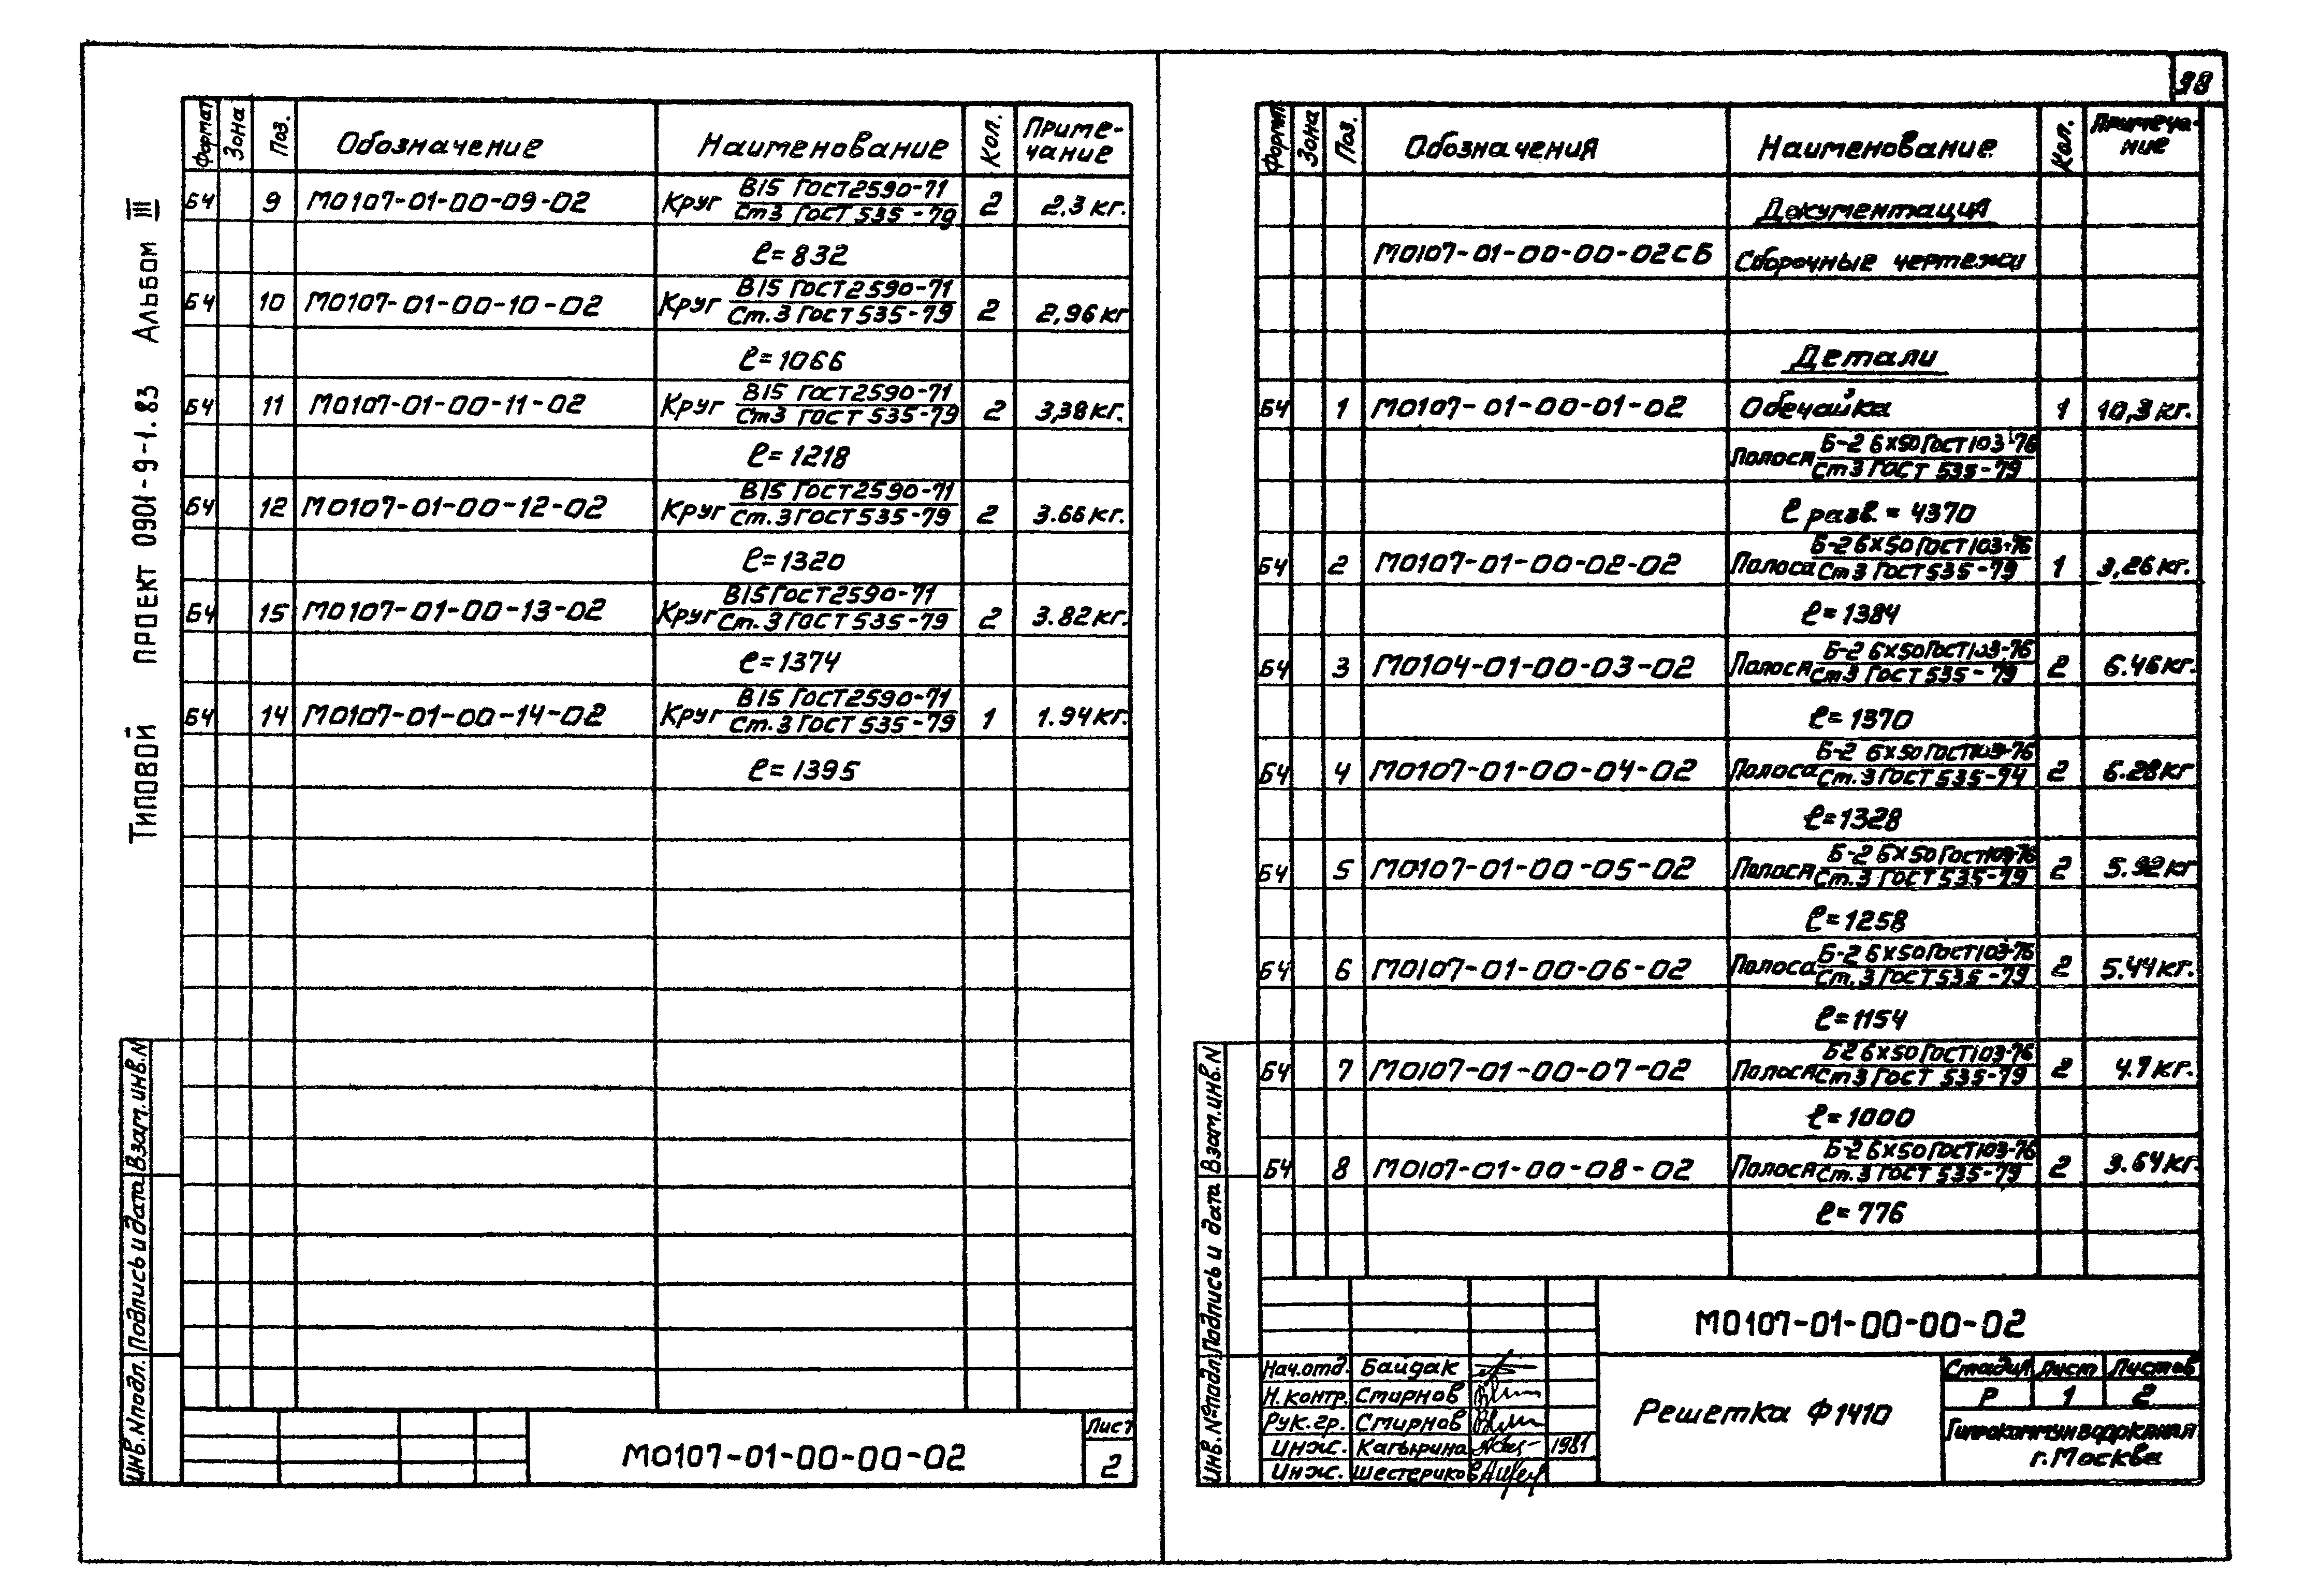 98
Типовой проект 0901-9-1.83 Альбом III
Формат Зона Поз. Обозначение Наименование Кол. Приме-
чание
Б4 9 М0107-01-00-09-02 Круг В15 ГОСТ 2590-71 2 2,3 кг.
Ст3 ГОСТ 535-79
ℓ=832
Б4 10 М0107-01-00-10-02 Круг В15 ГОСТ 2590-71 2 2,96 кг
Ст.3 ГОСТ 535-79
ℓ=1066
Б4 11 М0107-01-00-11-02 Круг В15 ГОСТ 2590-71 2 3,38 кг.
Ст3 ГОСТ 535-79
ℓ=1218
Б4 12 М0107-01-00-12-02 Круг В15 ГОСТ 2590-71 2 3.66 кг.
Ст.3 ГОСТ 535-79
ℓ=1320
Б4 15 М0107-01-00-13-02 Круг В15 ГОСТ 2590-71 2 3.82 кг.
Ст.3 ГОСТ 535-79
ℓ=1374
Б4 14 М0107-01-00-14-02 Круг В15 ГОСТ 2590-71 1 1.94 кг.
Ст.3 ГОСТ 535-79
ℓ=1395
Инв.Nподл. Подпись и дата Взам.инв.N
М0107-01-00-00-02
Лист
2
Формат Зона Поз. Обозначения Наименование Кол. Примеча-
ние
Документация
М0107-01-00-00-02СБ Сборочные чертежи
Детали
Б4 1 М0107-01-00-01-02 Обечайка 1 10,3 кг.
Полоса Б-2 6х50 ГОСТ 103-76
Ст3 ГОСТ 535-79
ℓ разв. = 4370
Б4 2 М0107-01-00-02-02 Полоса Б-2 6х50 ГОСТ 103-76 1 3,26 кг.
Ст3 ГОСТ 535-79
ℓ=1384
Б4 3 М0104-01-00-03-02 Полоса Б-2 6х50 ГОСТ 103-76 2 6.46 кг.
Ст3 ГОСТ 535-79
ℓ=1370
Б4 4 М0107-01-00-04-02 Полоса Б-2 6х50 ГОСТ 103-76 2 6.28 кг
Ст.3 ГОСТ 535-74
ℓ=1328
Б4 5 М0107-01-00-05-02 Полоса Б-2 6х50 ГОСТ 103-76 2 5.92 кг
Ст.3 ГОСТ 535-79
ℓ=1258
Б4 6 М0107-01-00-06-02 Полоса Б-2 6х50 ГОСТ 103-76 2 5.44 кг.
Ст.3 ГОСТ 535-79
ℓ=1154
Б4 7 М0107-01-00-07-02 Полоса Б2 6х50 ГОСТ 103-76 2 4.7 кг.
Ст3 ГОСТ 535-79
ℓ=1000
Б4 8 М0107-01-00-08-02 Полоса Б-2 6х50 ГОСТ 103-76 2 3.64 кг.
Ст.3 ГОСТ 535-79
ℓ=776
Инв.Nºподл. Подпись и дата Взам.инв.N
М0107-01-00-00-02
Нач.отд. Байдак
Н.контр. Смирнов
Рук.гр. Смирнов
Инж. Кагырина 1981
Инж. Шестериков
Решетка Ф1410
Стадия Лист Листов
Р 1 2
Гипрокоммунводоканал
г.Москва